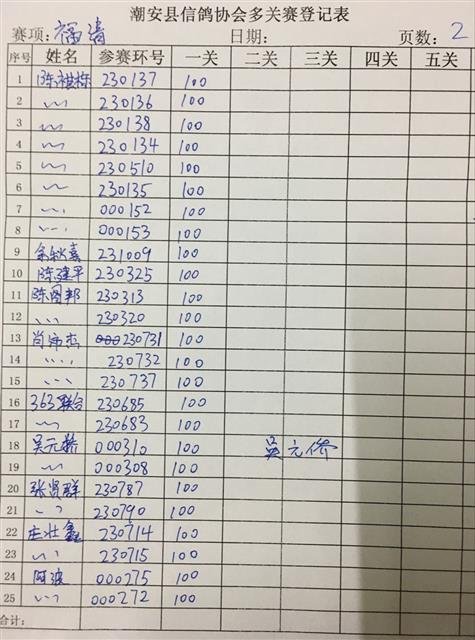 潮安县信鸽协会多关赛登记表
赛项: 福清 日期: 页数: 2
序号 姓名 参赛环号 一关 二关 三关 四关 五关
1 陈祺栋 230137 100
2 〃 230136 100
3 〃 230138 100
4 〃 230134 100
5 〃 230510 100
6 〃 230135 100
7 〃 000152 100
8 〃 000153 100
9 余秋嘉 231009 100
10 陈建平 230325 100
11 陈图邦 230313 100
12 〃 230320 100
13 肖伟杰 230731 100
14 〃 230732 100
15 〃 230737 100
16 363联合 230685 100
17 〃 230683 100
18 吴元桥 000310 100 吴元侨
19 〃 000308 100
20 张贤群 230787 100
21 〃 230790 100
22 庄壮鑫 230714 100
23 〃 230715 100
24 阿波 000275 100
25 〃 000272 100
合计: